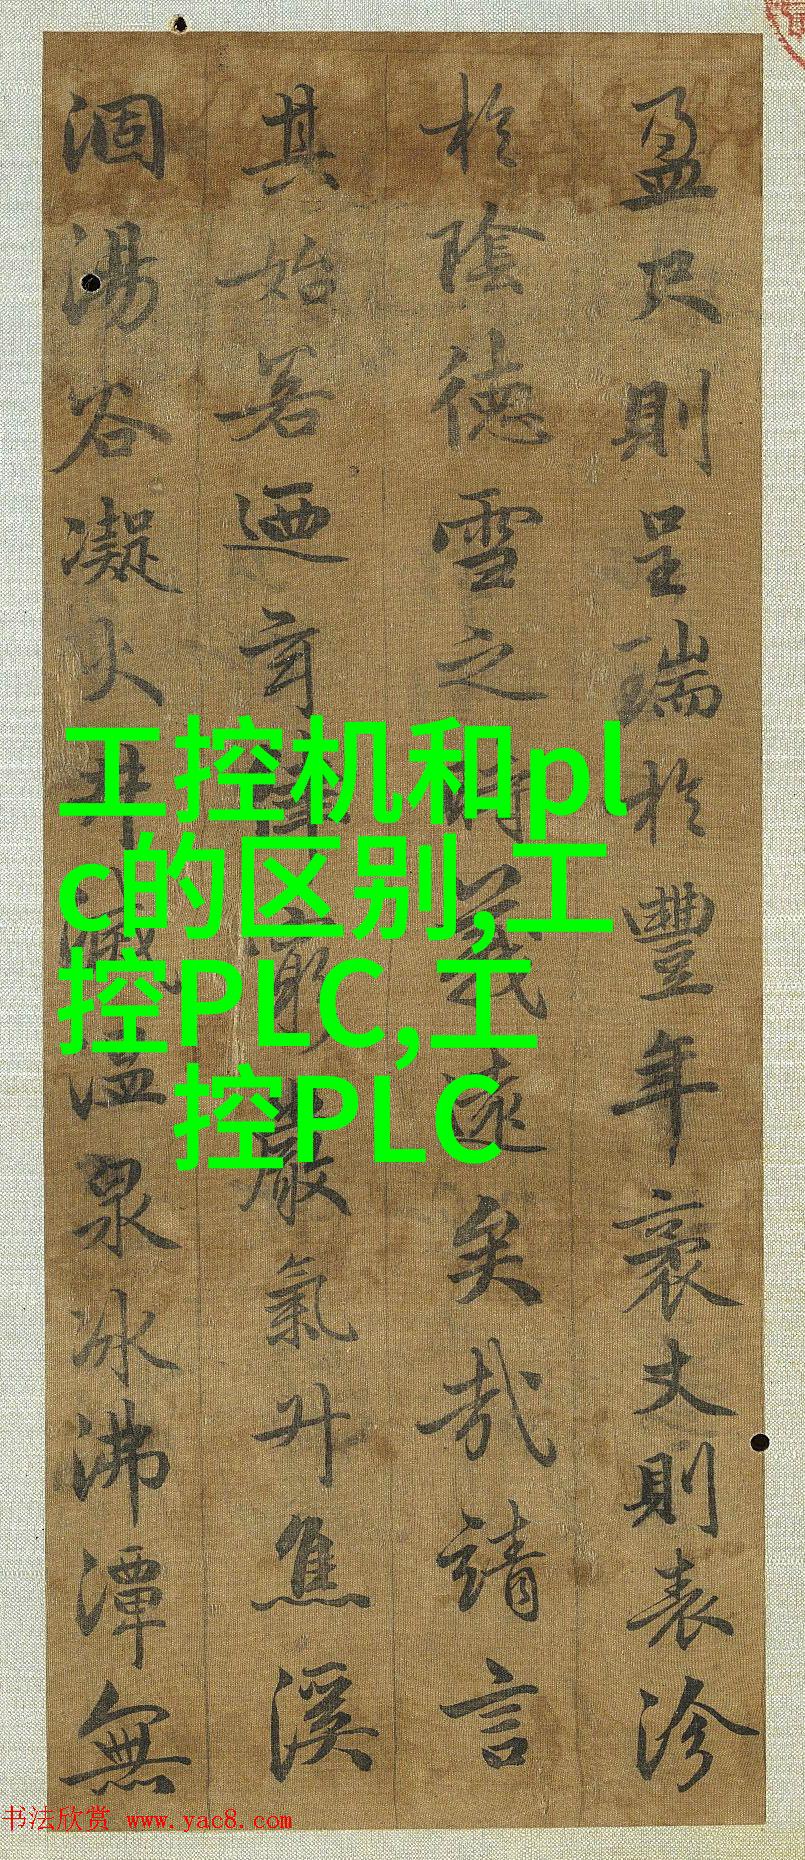 盈尺則呈瑞於豐年袤丈則表沴
於陰德雪之時義遠矣哉請言
其始若迺玄律窮嚴氣升焦溪
涸湯谷凝火井滅溫泉冰沸潭無
工控机和pl
c的区别,工
控PLC,工
控PLC
书法欣赏 www.yac8.com